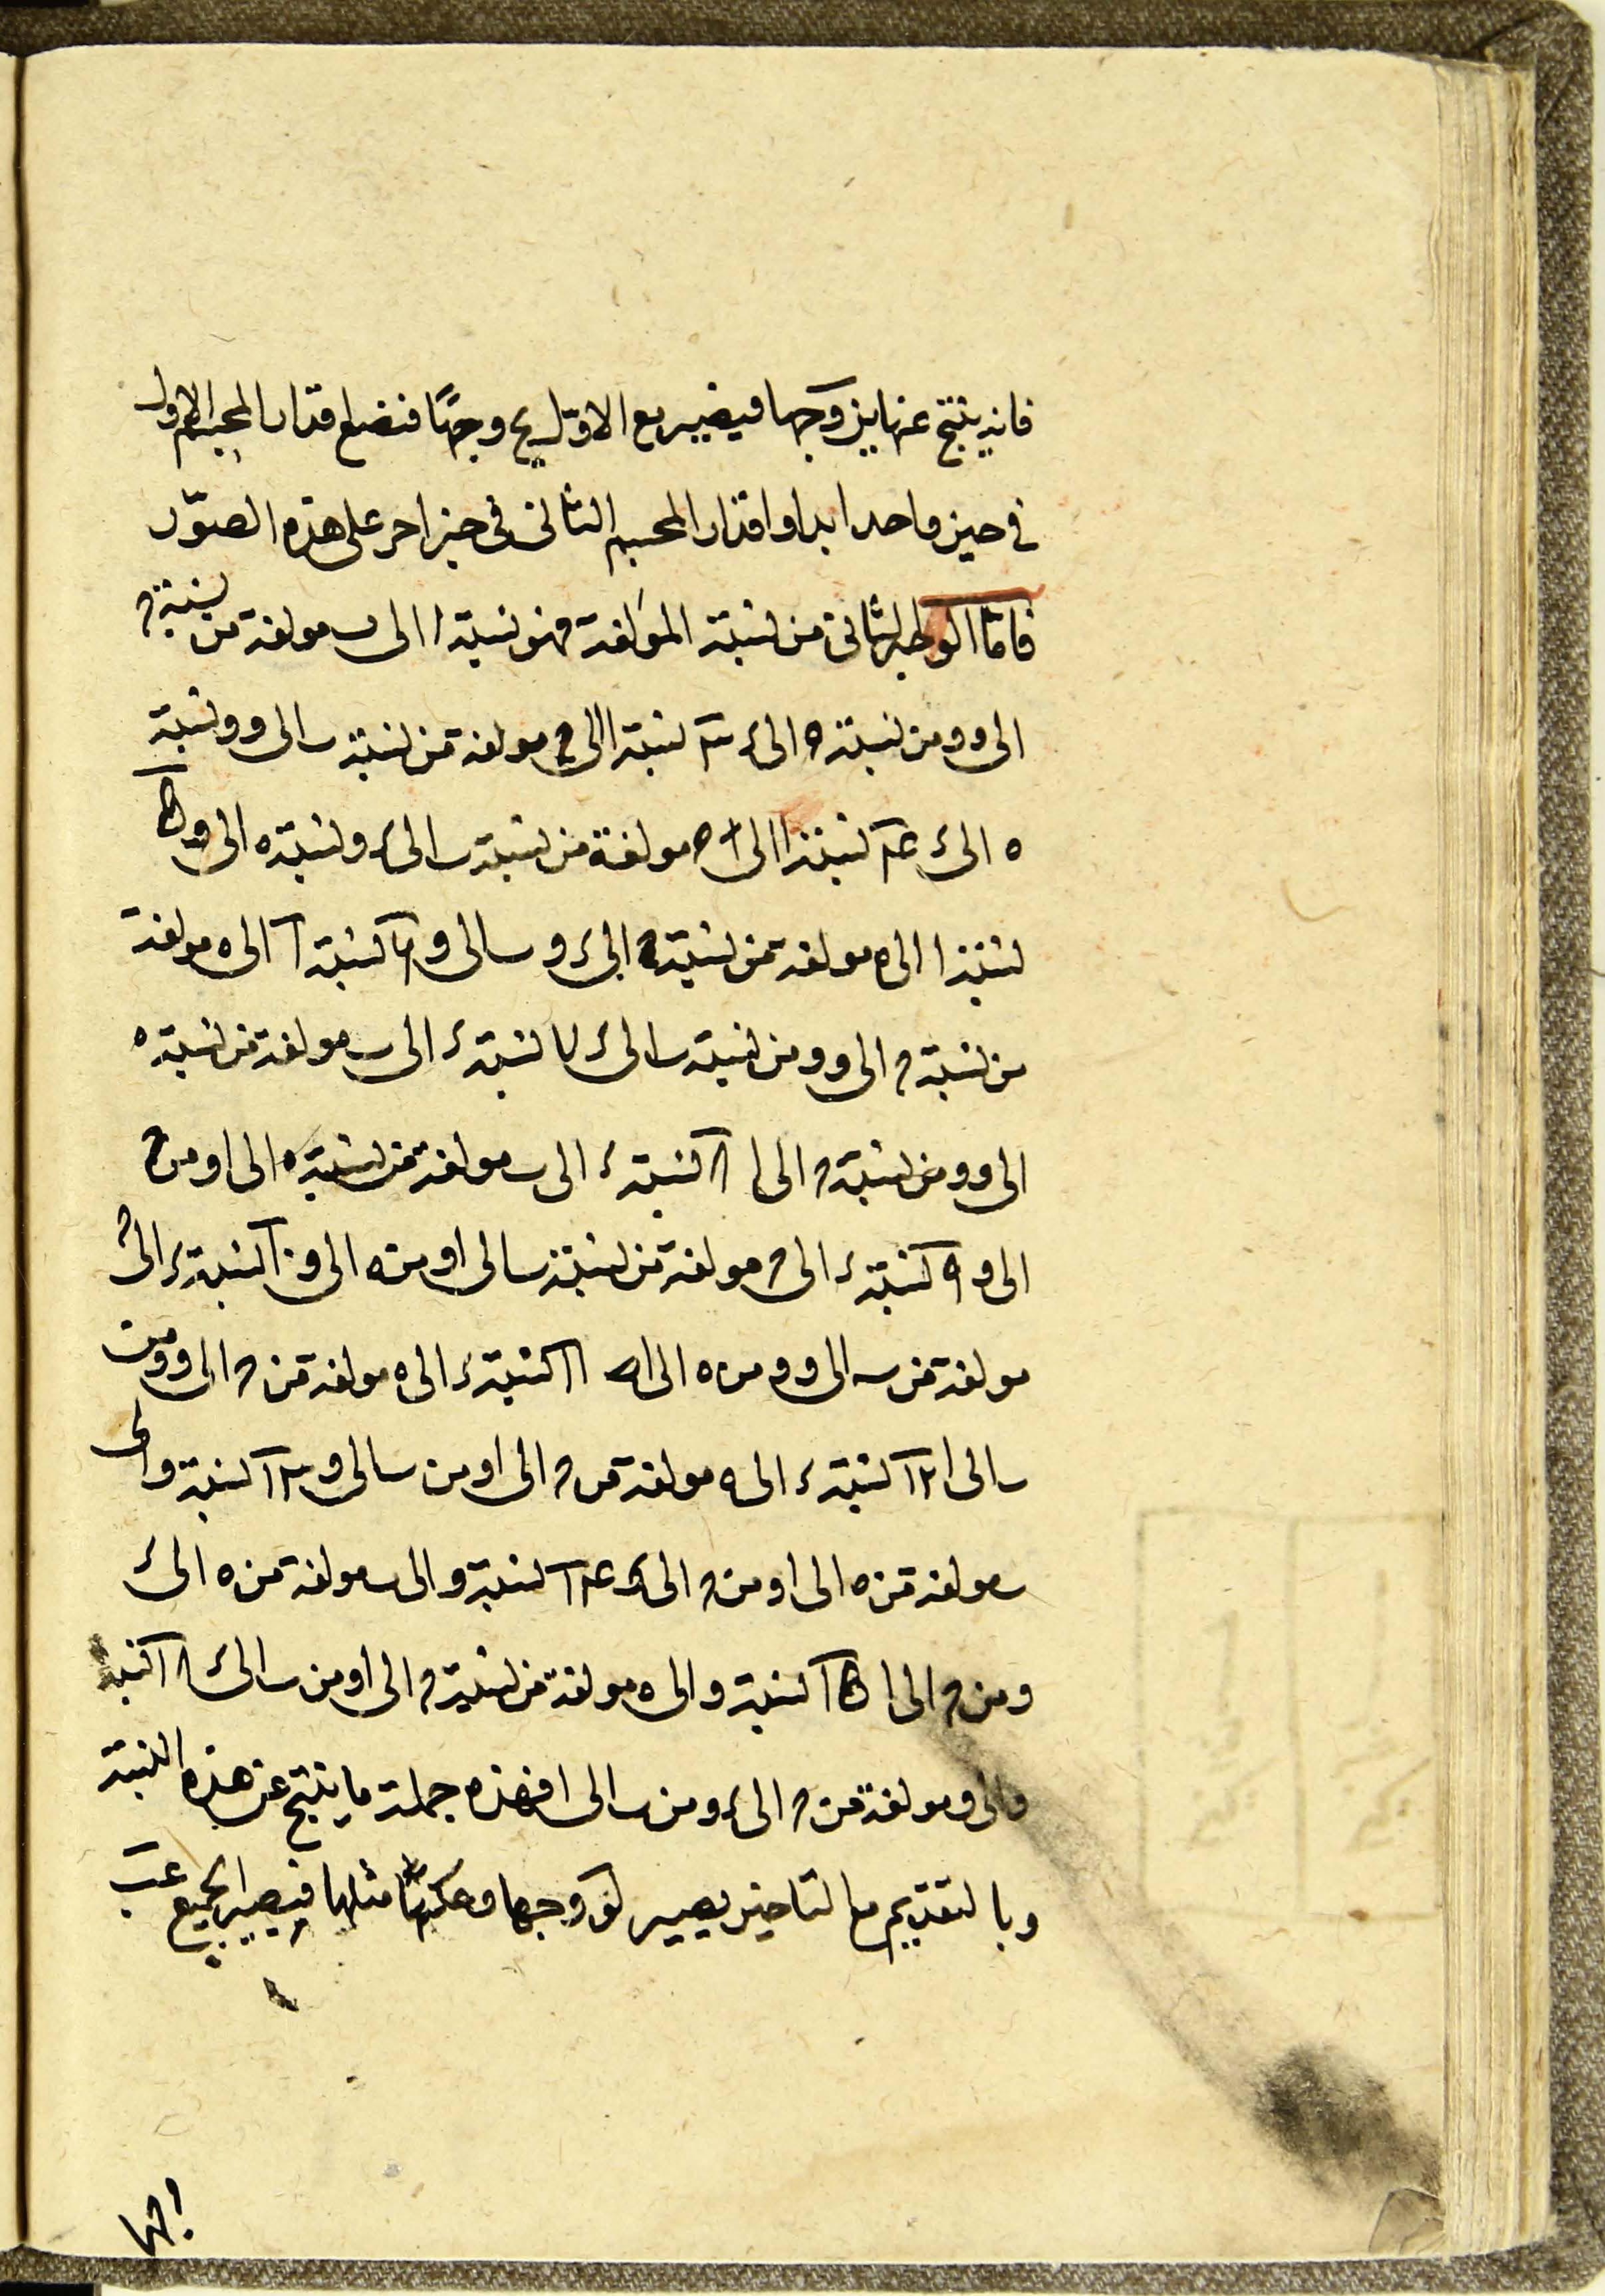 فانه ينتج عنها يز وجها فيصير مع الاول يح وجها فنضع اقدار المجسم الاول
فى حيز واحد ابدا واقدار المجسم الثانى فى حيز اخر على هذه الصور
فاما الثانى من نسبته المؤلفة فهو نسبة ا الى ب مولفة من نسبة ح
الى و ومن نسبة ه الى د ٣ نسبة ا الى ح مولفة من نسبة ب الى و ونسبة
ه الى د ع٣ نسبة ا الى ح مولفة من نسبة ب الى د ونسبة ه الى و
نسبة ا الى ه مولفة من نسبة ح الى د و ب الى و ٦ كنسبة ا الى ه مولفة
من نسبة ح الى و ومن نسبة ب الى د ٧ نسبة د الى ب مولفة من نسبة ه
الى و ومن نسبة ح الى ا ٨ كنسبة د الى ب مولفة من نسبة ه الى ا ومن ح
الى و ٩ كنسبة د الى ح مولفة من نسبة ب الى ا ومن ه الى و ١٠ كنسبة د الى ح
مولفة من ب الى و ومن ه الى ا ١١ كنسبة د الى ه مولفة من ح الى و ومن
ب الى ا ١٢ كنسبة د الى ه مولفة من ح الى ا ومن ب الى و ١٣ كنسبة و الى
ب مولفة من ه الى ا ومن ح الى د ١٤ كنسبة و الى ب مولفة من ه الى د
ومن ح الى ا ١٥ كنسبة و الى ه مولفة من نسبة ح الى ا ومن ب الى د
والى و مولفة من ح الى د ومن ب الى ا فهذه جملة ما ينتج عن هذه النسبة
وبالتقديم مع التاخير يصير لو وجها وعكسها مثلها فيصير الجميع عب